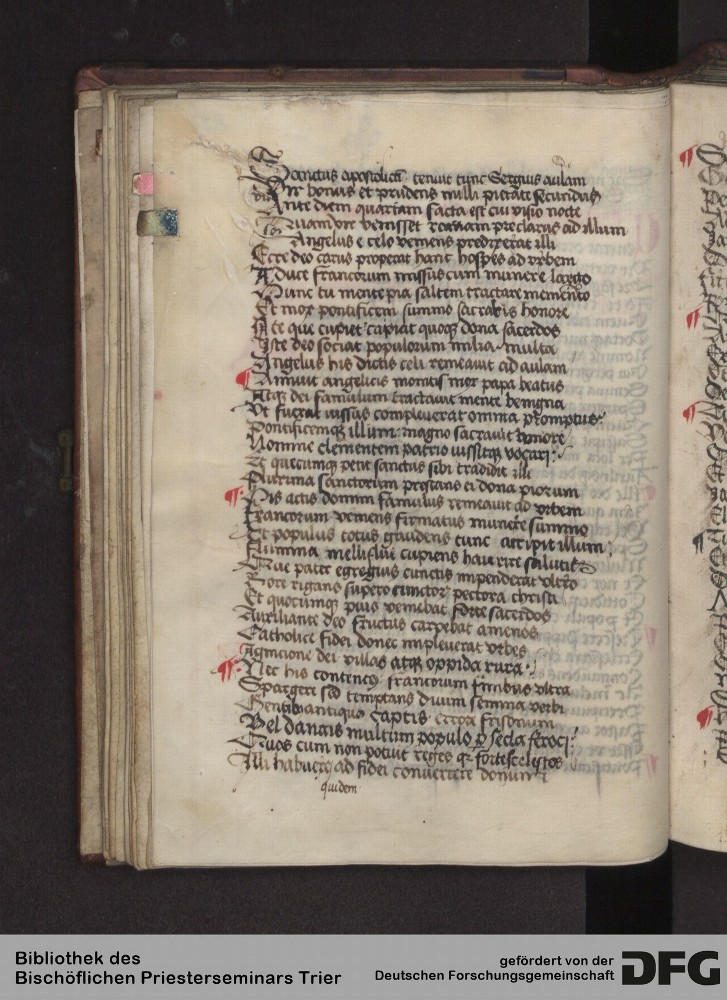 Sanctus apostolicā tenuit tunc Sergius aulam
Vir bonus et prudens nulli pietate secundus
Ante diem quartam facta est cui visio nocte
Quam vir venisset romam preclarus ad illum
Angelus e celo veniens predixerat illi
Ecce deo carus properat hanc hospes ad vrbem
A duce francorum missus cum munere largo
Hunc tu mente pia saltem tractare memento
Et mox pontificem summo sacrabis honore
A te que cupiet capiat quoqȝ dona sacerdos
Iste deo sociat populorum milia multa
Angelus his dictis celi remeauit ad aulam
Annuit angelicis monitis mox papa beatus
Atqȝ dei famulum tractauit mente benigna
Vt fuerat iussus compleuerat omnia promptus
Pontificemqȝ illum magno sacrauit honore
Nomine clementem patrio iussitqȝ vocari
Et quecumqȝ petit sanctus sibi tradidit illi
Plurima sanctorum prestans ei dona piorum
His actis domini famulus remeauit ad vrbem
Francorum veniens firmatus munere summo
Et populus totus gaudens tunc accipit illum
Flumina melliflui cupiens haurire salutis
Que pater egregius cunctis impenderat vltro
Rore rigans supero cunctor pectora christi
Et quocumqȝ pius veniebat forte sacerdos
Auxiliante deo fructus carpebat amenos
Catholice fidei donec impleuerat vrbes
Agnicione dei villas atqȝ oppida rura
Nec his contentus francorum finibus vltra
Spargere sed temptans diuini semina verbi
Gentibus antiquo captis errore frisonum
Vel danais multum populo ꝑ secla feroci
Quos cum non potuit reges qȝ fortes celestes
Illi habuere ad fidei conuertere donum
quidem
Bibliothek des
Bischöflichen Priesterseminars Trier
gefördert von der
Deutschen Forschungsgemeinschaft
DFG